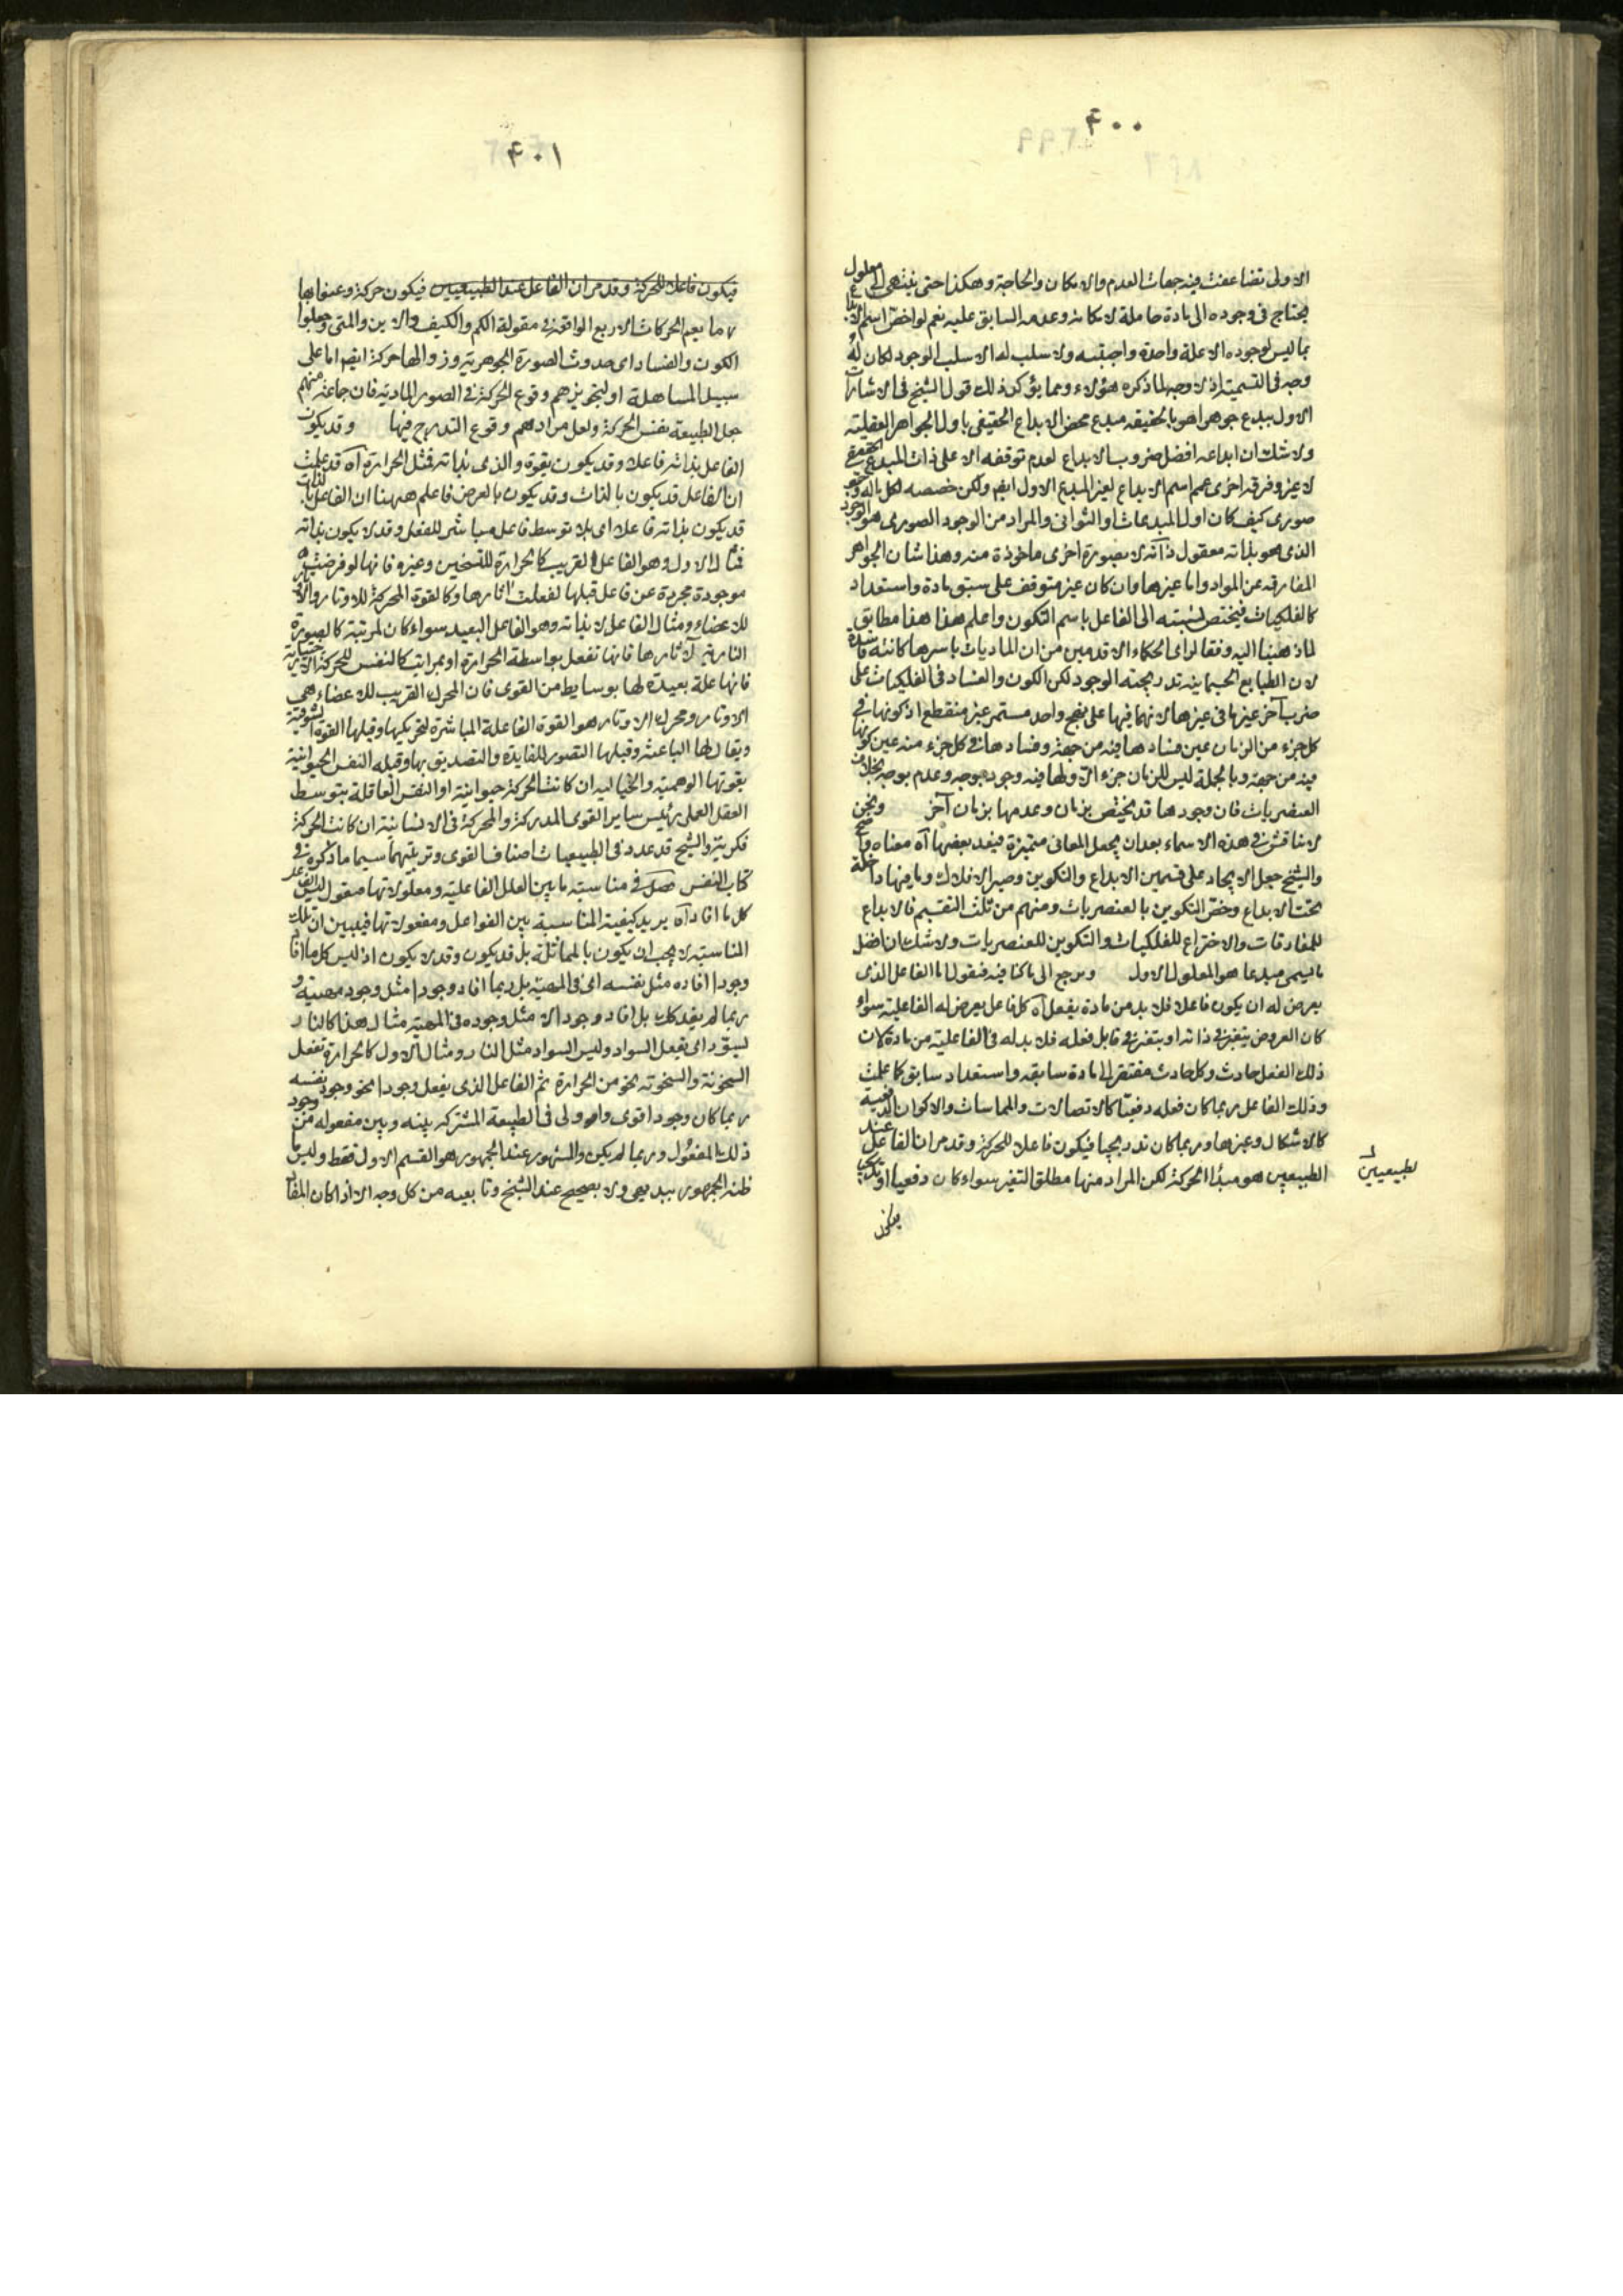 ۴۰۰
الاولى تضاعفت فيه جهات العدم والامكان والحاجة وهكذا حتى ينتهى الى معلول
يحتاج فى وجوده الى مادة حاملة لامكانه وعدمه السابق عليه نعم لو اختص اسم الابداع
بما ليس لوجوده الا علة واحدة واجبية ولا سلب له الا سلب الوجود لكان له
وجه فى التسمية اذ لا وجه لما ذكره هؤلاء ومما يؤكد ذلك قول الشيخ فى الاشارات
الاول يبدع جوهرا هو بالحقيقة مبدع محض الابداع الحقيقى باول الجواهر العقلية
ولا شك ان ابداعه افضل ضروب الابداع لعدم توقفه الا على ذات المبدع الحق
لا غير وفرقة اخرى عمم اسم الابداع لغير المبدع الاول ايضا ولكن خصصه لكل ماله وجود
صورى كيف كان اول المبدعات او الثوانى والمراد من الوجود الصورى هو الوجود
الذى هو بذاته معقول ذاته لا بصورة اخرى ماخوذة منه وهذا شان الجواهر
المفارقة عن المواد واما غيرها وان كان غير متوقف على سبق مادة واستعداد
كالفلكيات فيختص نسبته الى الفاعل باسم التكون واعلم هذا هذا مطابق
لما ذهبنا اليه وفقا لراى الحكماء الاقدمين من ان الماديات باسرها كائنة فاسدة
لان الطبايع الجسمانية تدريجية الوجود لكن الكون والفساد فى الفلكيات على
ضرب آخر غير ما فى غيرها لانهما فيها على نهج واحد مستمر غير منقطع اذ كونها فى
كل جزء من الزمان عين فسادها فيه من جهة وفسادها فى كل جزء منه عين كونها
فيه من جهة وبالجملة ليس للزمان جزء الا ولها فيه وجود بوجه وعدم بوجه بخلاف
العنصريات فان وجودها قد يختص بزمان وعدمها بزمان آخر ونحن
لا نناقش فى هذه الاسماء بعد ان يجعل المعانى متميزة فيفد بعضها آه معناه واضح
والشيخ جعل الايجاد على قسمين الابداع والتكوين وصير الافلاك وما فيها داخلة
تحت الابداع وخص التكوين بالعنصريات ومنهم من ثلث التقسيم فالابداع
للمفارقات والاختراع للفلكيات والتكوين للعنصريات ولا شك ان افضل
ما يسمى مبدعا هو المعلول الاول ونرجع الى ما كنا فيه فنقول اما الفاعل الذى
يعرض له ان يكون فاعلا فلا بد من مادة يفعل آه كل فاعل يعرض له الفاعلية سواء
كان العروض بتغير فى ذاته او بتغير فى قابل فعله فلا بد له فى الفاعلية من مادة لان
ذلك الفعل حادث وكل حادث مفتقر الى مادة سابقة واستعداد سابق كما علمت
وذلك الفاعل ربما كان فعله دفعيا كالاتصالات والمماسات والاكوان الدفعية
كالاشكال وغيرها وربما كان تدريجيا فيكون فاعلا للحركة وقد مر ان الفاعل عند
الطبيعيين هو مبدأ الحركة لكن المراد منها مطلق التغير سواء كان دفعيا او تدريجيا
لطبيعيين
فيكون
۴۰۱
فيكون فاعلا للحركة وقد مر ان الفاعل عند الطبيعيين فيكون حركة وعنوا بها
ما يعم الحركات الاربع الواقعة فى مقولة الكم والكيف والاين والمتى وجعلوا
الكون والفساد اى حدوث الصورة الجوهرية وزوالها حركة ايضا اما على
سبيل المساهلة او لتجويزهم وقوع الحركة فى الصور المادية فان جماعة منهم
جعل الطبيعة نفس الحركة ولعل مرادهم وقوع التدرج فيها وقد يكون
الفاعل بذاته فاعلا وقد يكون بقوة والذى بذاته فمثل الحرارة آه قد علمت
ان الفاعل قد يكون بالذات وقد يكون بالعرض فاعلم ههنا ان الفاعل بالذات
قد يكون بذاته فاعلا اى بلا توسط فاعل مباشر للفعل وقد لا يكون بذاته
فمثال الاول وهو الفاعل القريب كالحرارة للتسخين وغيره فانها لو فرضت
موجودة مجردة عن فاعل قبلها لفعلت آثارها وكالقوة المحركة للاوتار والاوتار
للاعضاء ومثال الفاعل لا بذاته وهو الفاعل البعيد سواء كان لمرتبة كالصورة
النارية لآثارها فانها تفعل بواسطة الحرارة او بمراتب كالنفس للحركة الاختيارية
فانها علة بعيدة لها بوسايط من القوى فان المحرك القريب للاعضاء هى
الاوتار ومحرك الاوتار هو القوة الفاعلة المباشرة لتحريكها وقبلها القوة الشوقية
ويقال لها الباعثة وقبلها التصور للفايدة والتصديق بها وقبله النفس الحيوانية
بقوتها الوهمية والخيالية ان كانت الحركة حيوانية او النفس العاقلة بتوسط
العقل العملى رئيس ساير القوى المدركة والمحركة فى الانسانية ان كانت الحركة
فكرية والشيخ قد عدد فى الطبيعيات اصناف القوى وترتيبها سيما ما ذكره فى
كتاب النفس فصل فى مناسبة ما بين العلل الفاعلية ومعلولاتها فنقول ليس الفاعل
كل ما افاد آه يريد كيفية المناسبة بين الفواعل ومفعولاتها فيبين ان تلك
المناسبة لا يجب ان يكون بالمماثلة بل قد يكون وقد لا يكون اذ ليس كل ما افاد
وجودا افاده مثل نفسه اى فى المهية بل ربما افاد وجودا مثل وجود مهيته و
ربما لم يفد كك بل افاد وجودا لا مثل وجوده فى المهية مثال هذا كالنار
تسود اى يفعل السواد وليس السواد مثل النار ومثال الاول كالحرارة تفعل
السخونة والسخونة نحو من الحرارة ثم الفاعل الذى يفعل وجودا نحو وجود نفسه
ربما كان وجودا اقوى واولى فى الطبيعة المشتركة بينه وبين مفعوله من وجود
ذلك المفعول وربما لم يكن والمشهور عند الجمهور هو القسم الاول فقط وليس ما
ظنه الجمهور ببديهى ولا بصحيح عند الشيخ وتابعيه من كل وجه الا اذا كان المفا